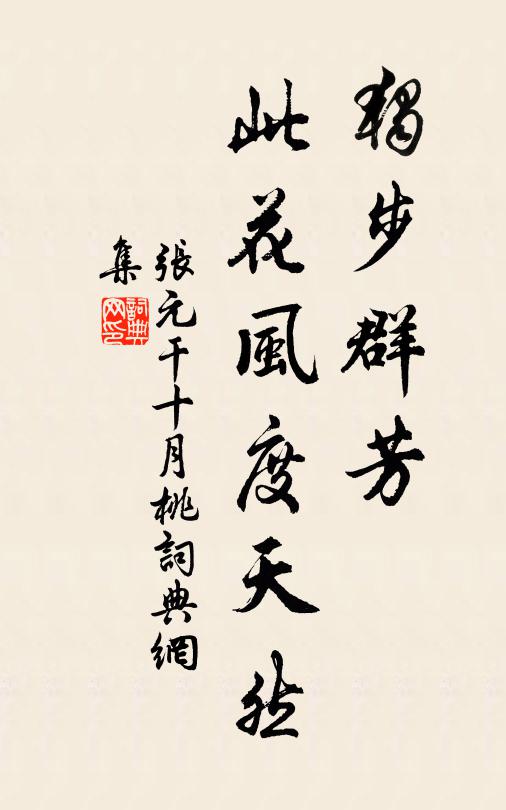 獨步群芳
此花風度天然
張元干十月桃詞典網
集
詞典
网印